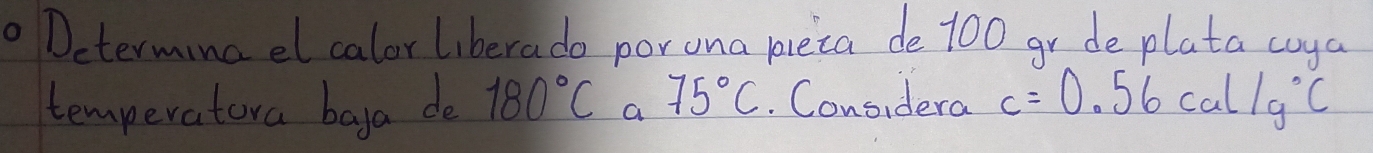 o Determina el calor liberado por una pieza de 100 gr de plata cuya
temperatura baja de 180°C a 75°C. Considera c = 0.56 cal/g°C